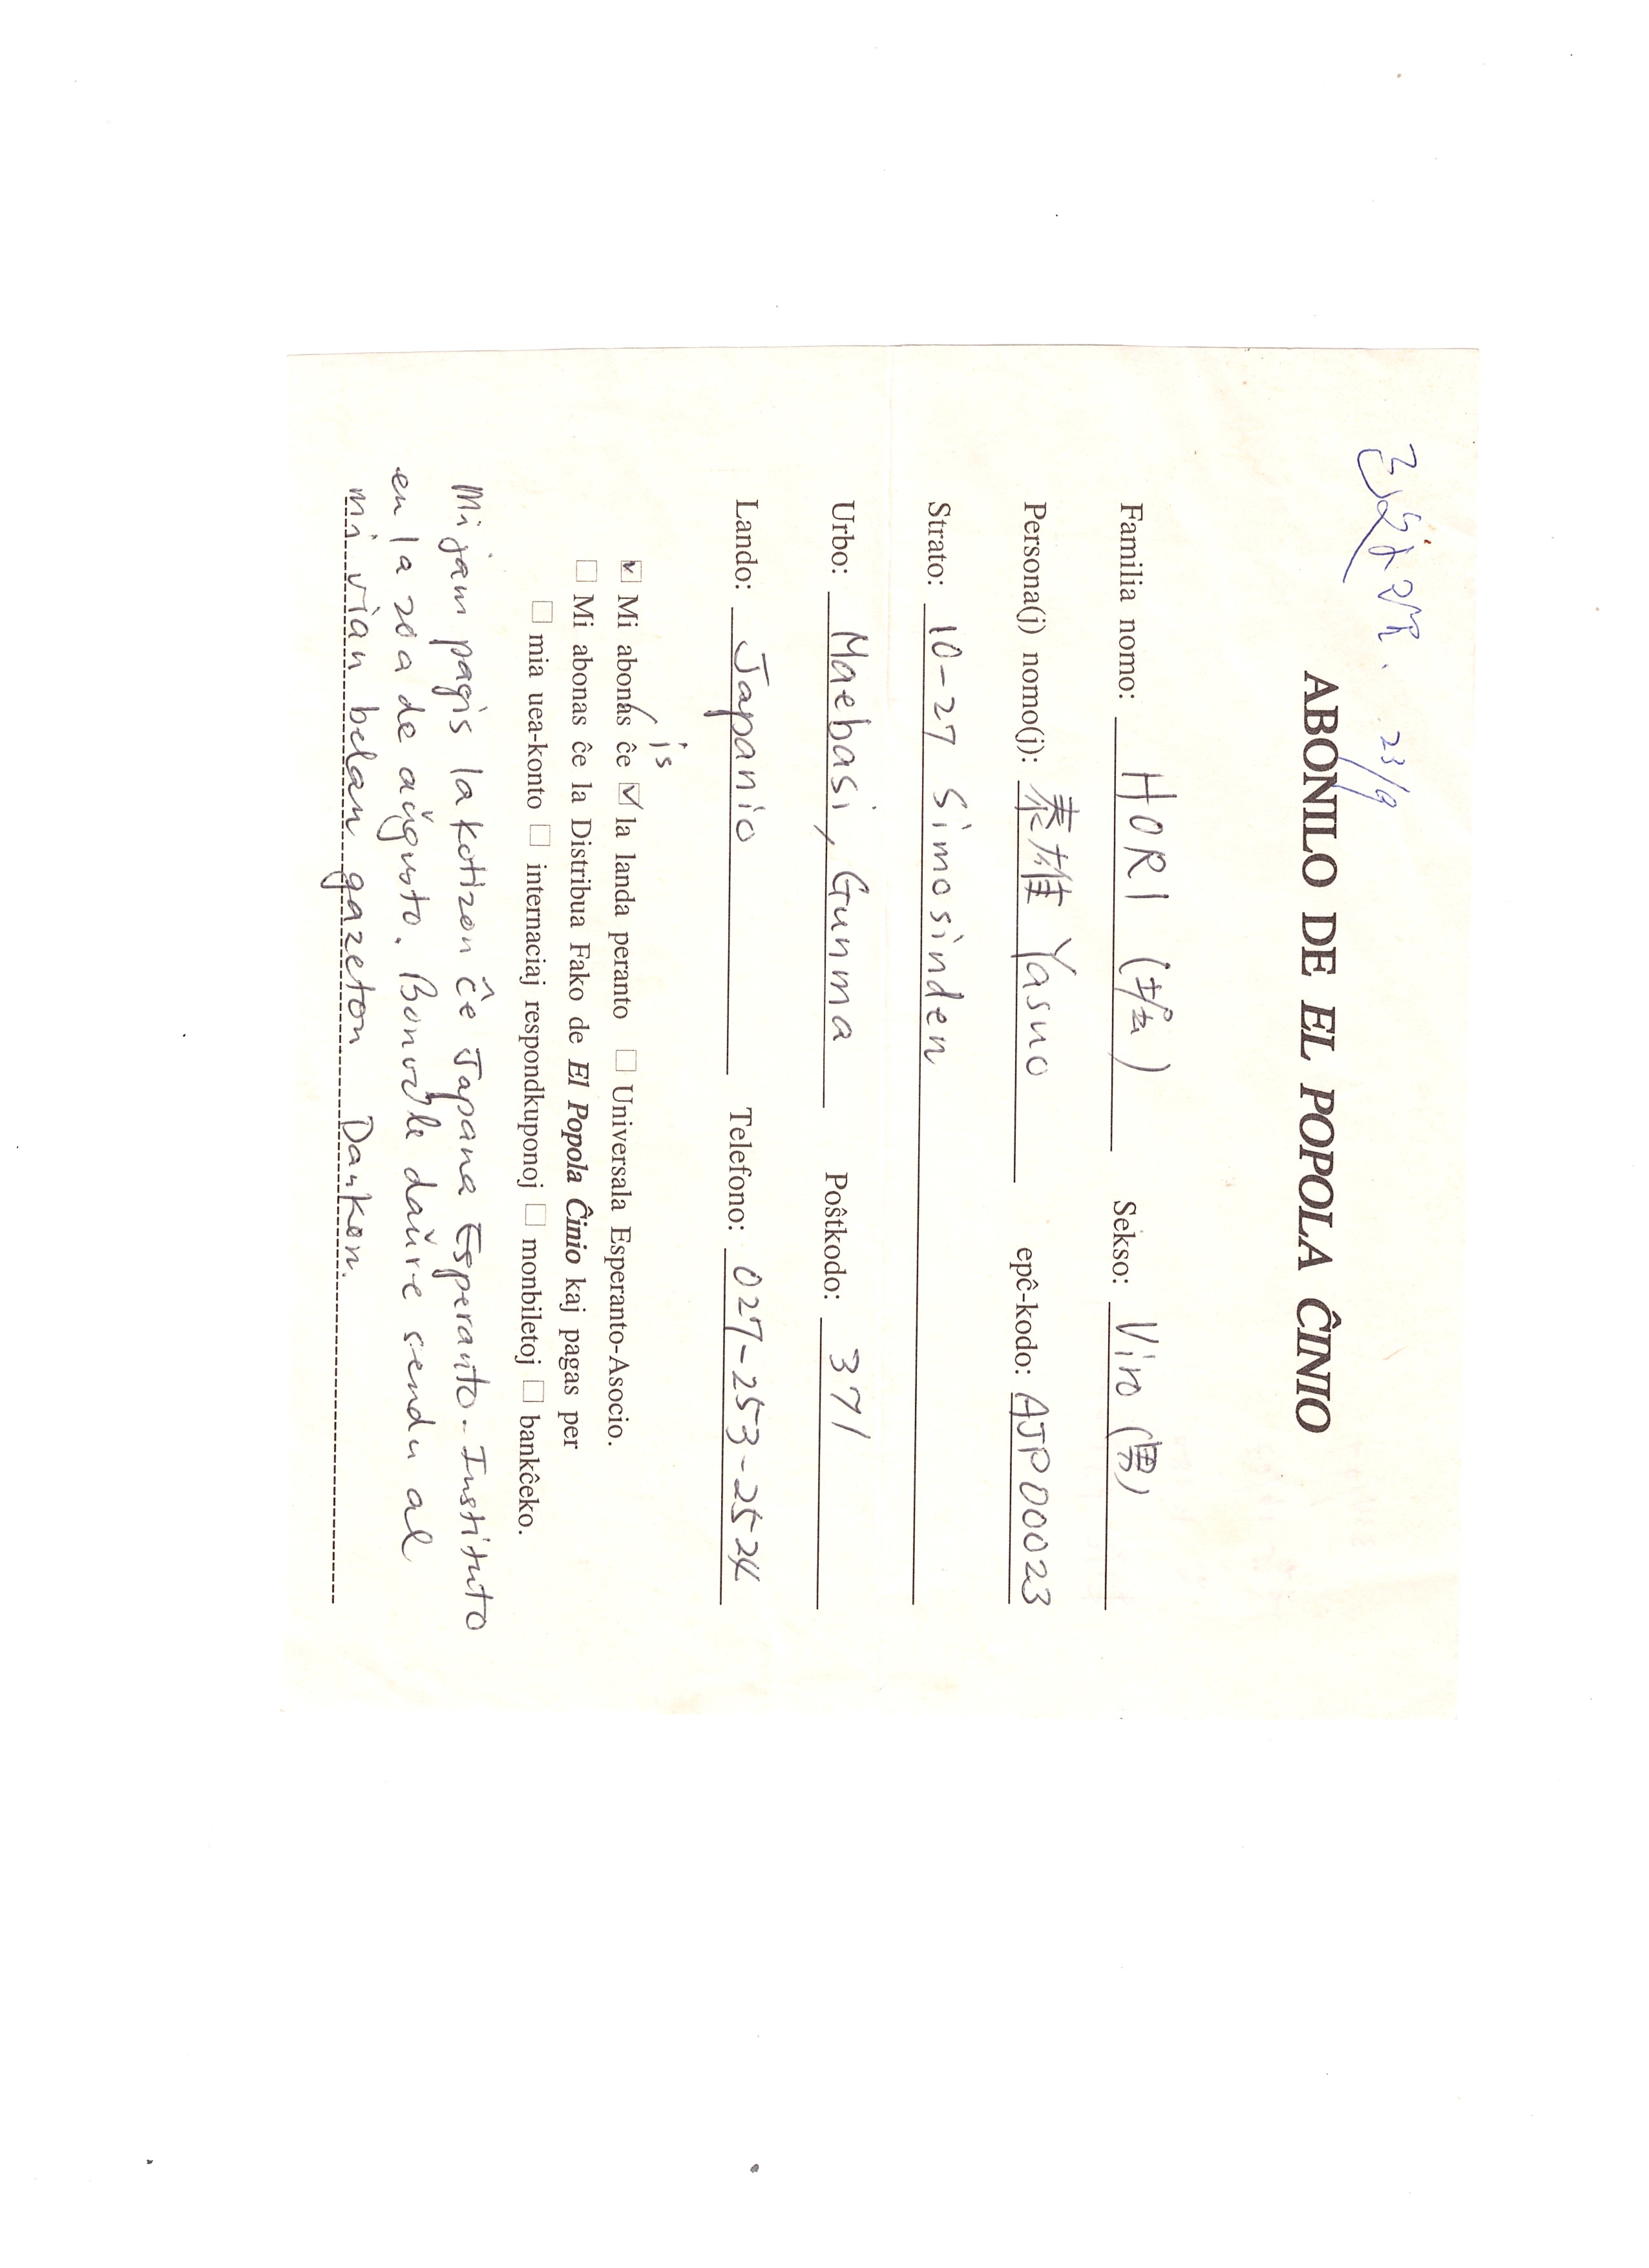 23/9
ABONILO DE EL POPOLA ĈINIO
Familia nomo: HORI (堀) Sekso: Viro (男)
Persona(j) nomo(j): 泰雄 Yasuo epĉ-kodo: AJP00023
Strato: 10-27 Simosinden
Urbo: Maebasi, Gunma Poŝtkodo: 371
Lando: Japanio Telefono: 027-253-2524
is
☑ Mi abonas ĉe ☑ la landa peranto ☐ Universala Esperanto-Asocio.
☐ Mi abonas ĉe la Distribua Fako de El Popola Ĉinio kaj pagas per
☐ mia uea-konto ☐ internaciaj respondkuponoj ☐ monbiletoj ☐ bankĉeko.
Mi jam pagis la kotizon ĉe Japana Esperanto-Instituto
en la 20a de aŭgusto. Bonvole daŭre sendu al
mi vian belan gazeton Dankon.